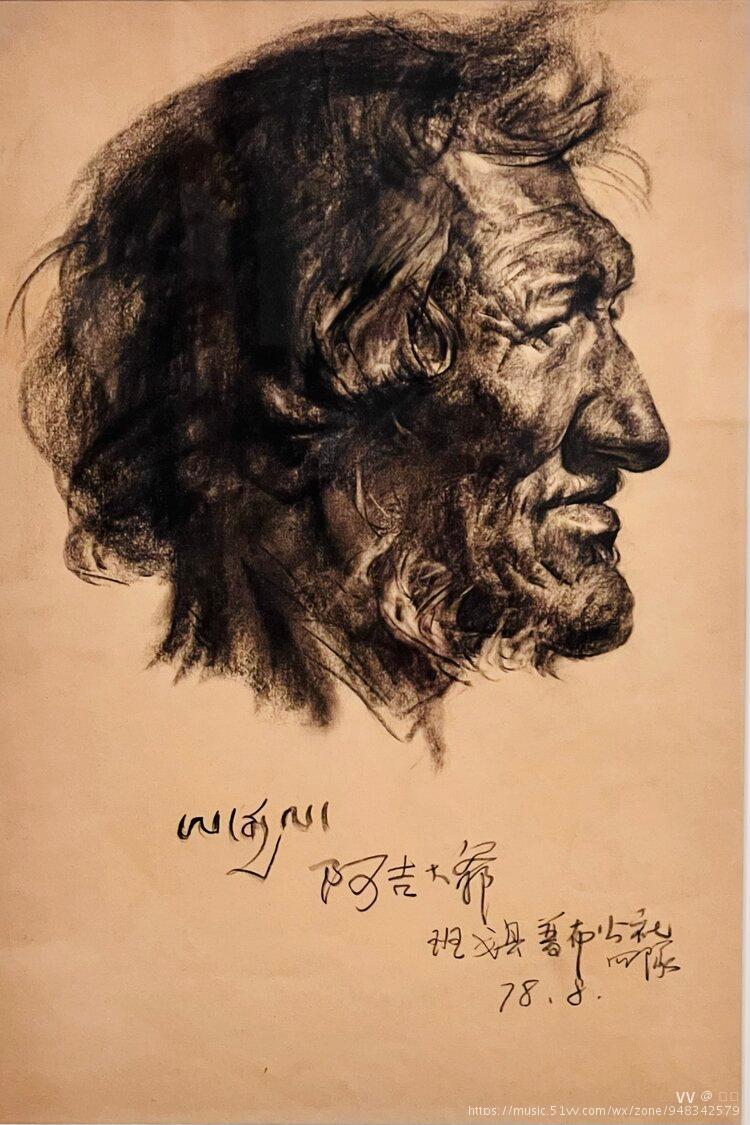 阿吉大爷
班戈县普布公社
四队
78.8.
VV @
https://music.51vv.com/wx/zone/948342579